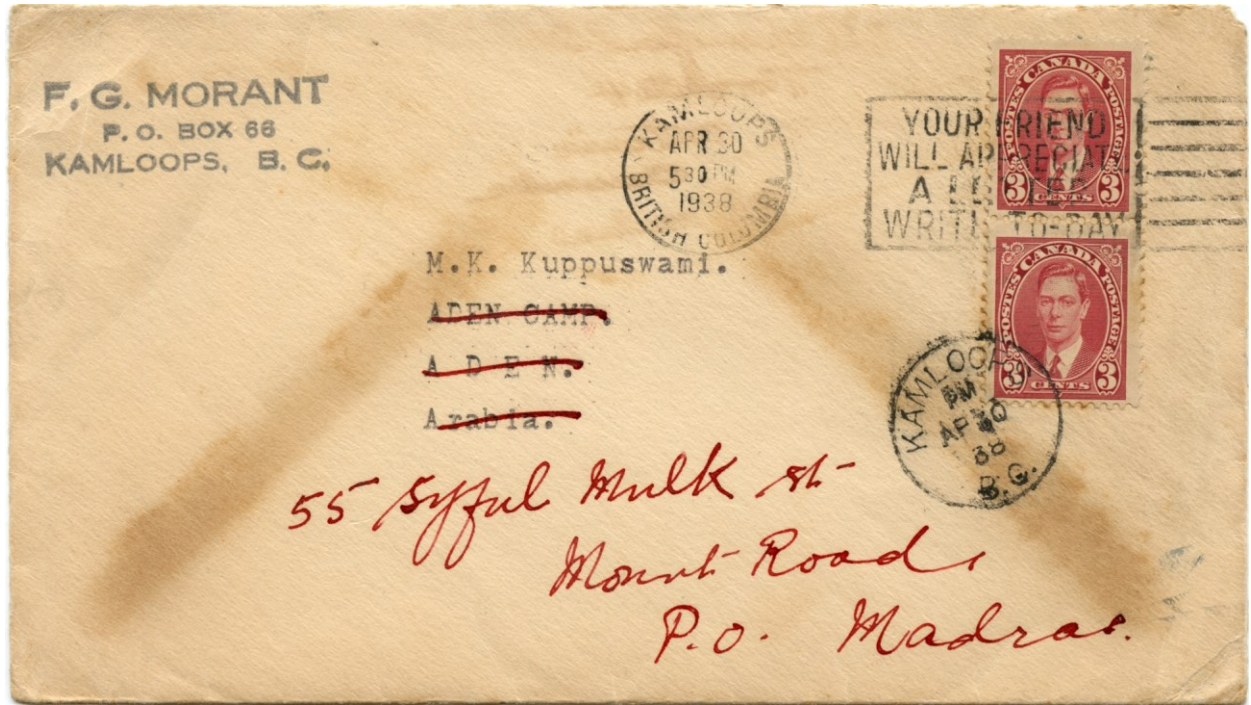 F. G. MORANT
P. O. BOX 66
KAMLOOPS, B. C.
KAMLOOPS
APR 30
5 30 PM
1938
BRITISH COLUMBIA
YOUR FRIEND
WILL APPRECIATE
A LETTER
WRITE TO-DAY
POSTES CANADA POSTAGE
3 CENTS 3
POSTES CANADA POSTAGE
3 CENTS 3
M.K. Kuppuswami.
ADEN CAMP.
A D E N.
Arabia.
KAMLOOPS
PM
AP 30
38
B.C.
55 Syful Mulk st
Mount Road
P.O. Madras.